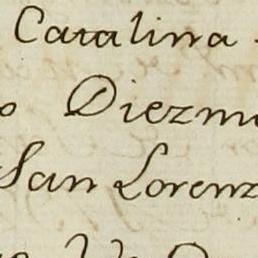 Catalina
o Diezm
San Lorenz